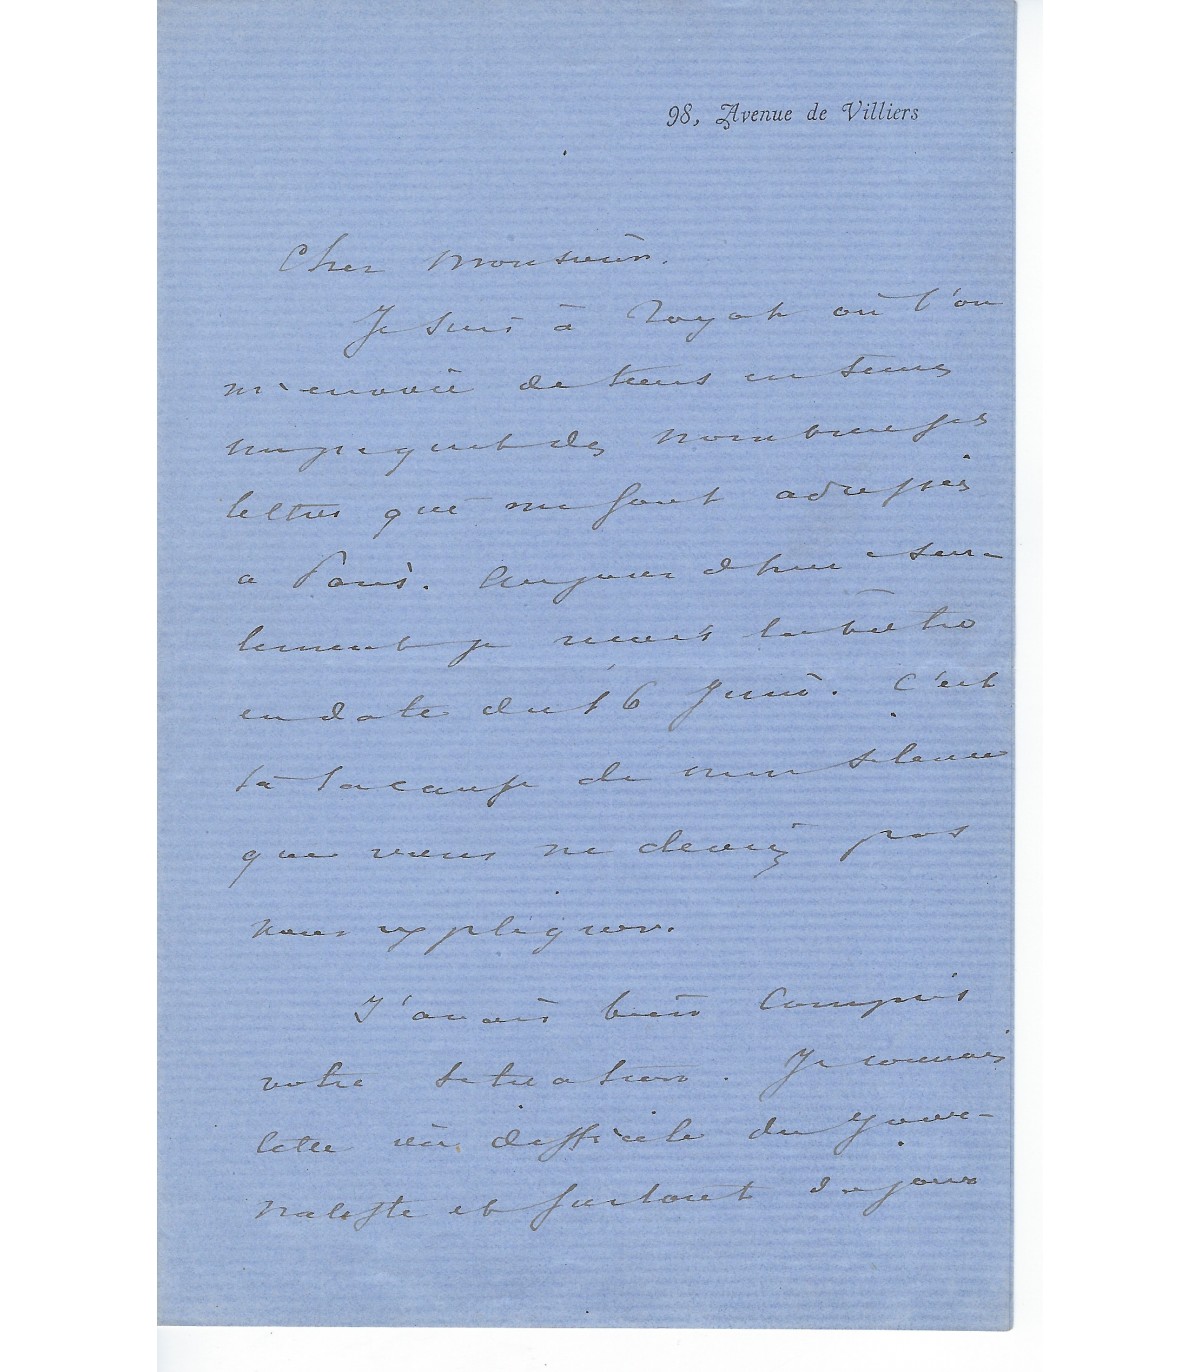 98, Avenue de Villiers
Cher Monsieur.
Je suis à Royat où l'on
m'envoie de tems en tems
un paquet des nombreuses
lettres qui me sont adressées
a Paris. Aujourd'hui seu-
lement je reçois la vôtre
en date du 16 Juin. C'est
là la cause de mon silence
que vous ne deviez pas
vous expliquer.
J'avais bien compris
votre situation. Je connais
cette vie difficile du jour-
naliste et surtout du jour-